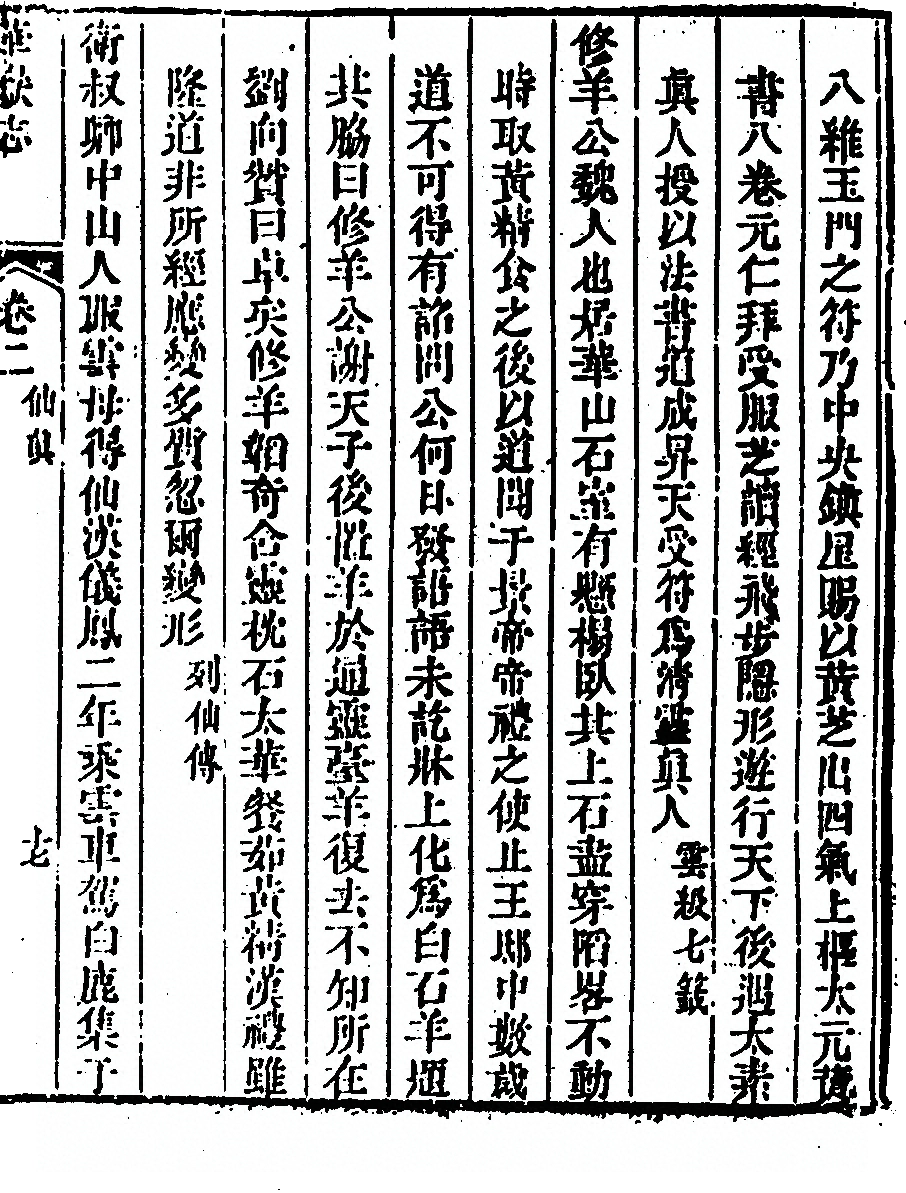 八雜玉門之符乃中央鎮星賜以黃芝出四氣上樞太元
書八卷元仁拜受服芝讀經飛步隱形遊行天下後遇太素
眞人授以法書道成昇天受符爲濟眞人雲笈七籤
修羊公魏人也居華山石室有懸榻臥其上石盡穿陷畧不動
時取黃精食之後以道聞于景帝帝禮之使止王邸中數歲
道不可得有詔問公何日發語語未訖牀上化爲白石羊題
其脇曰修羊公謝天子後置羊於通靈臺羊復去不知所在
劉向贊曰卓矣修羊韜奇含靈枕石太華餐茹黃精漢禮雖
隆道非所經應變多質忽爾變形列仙傳
衛叔卿中山人服雲母得仙漢儀鳳二年乘雲車駕白鹿集于
華嶽志
卷二
仙眞
七